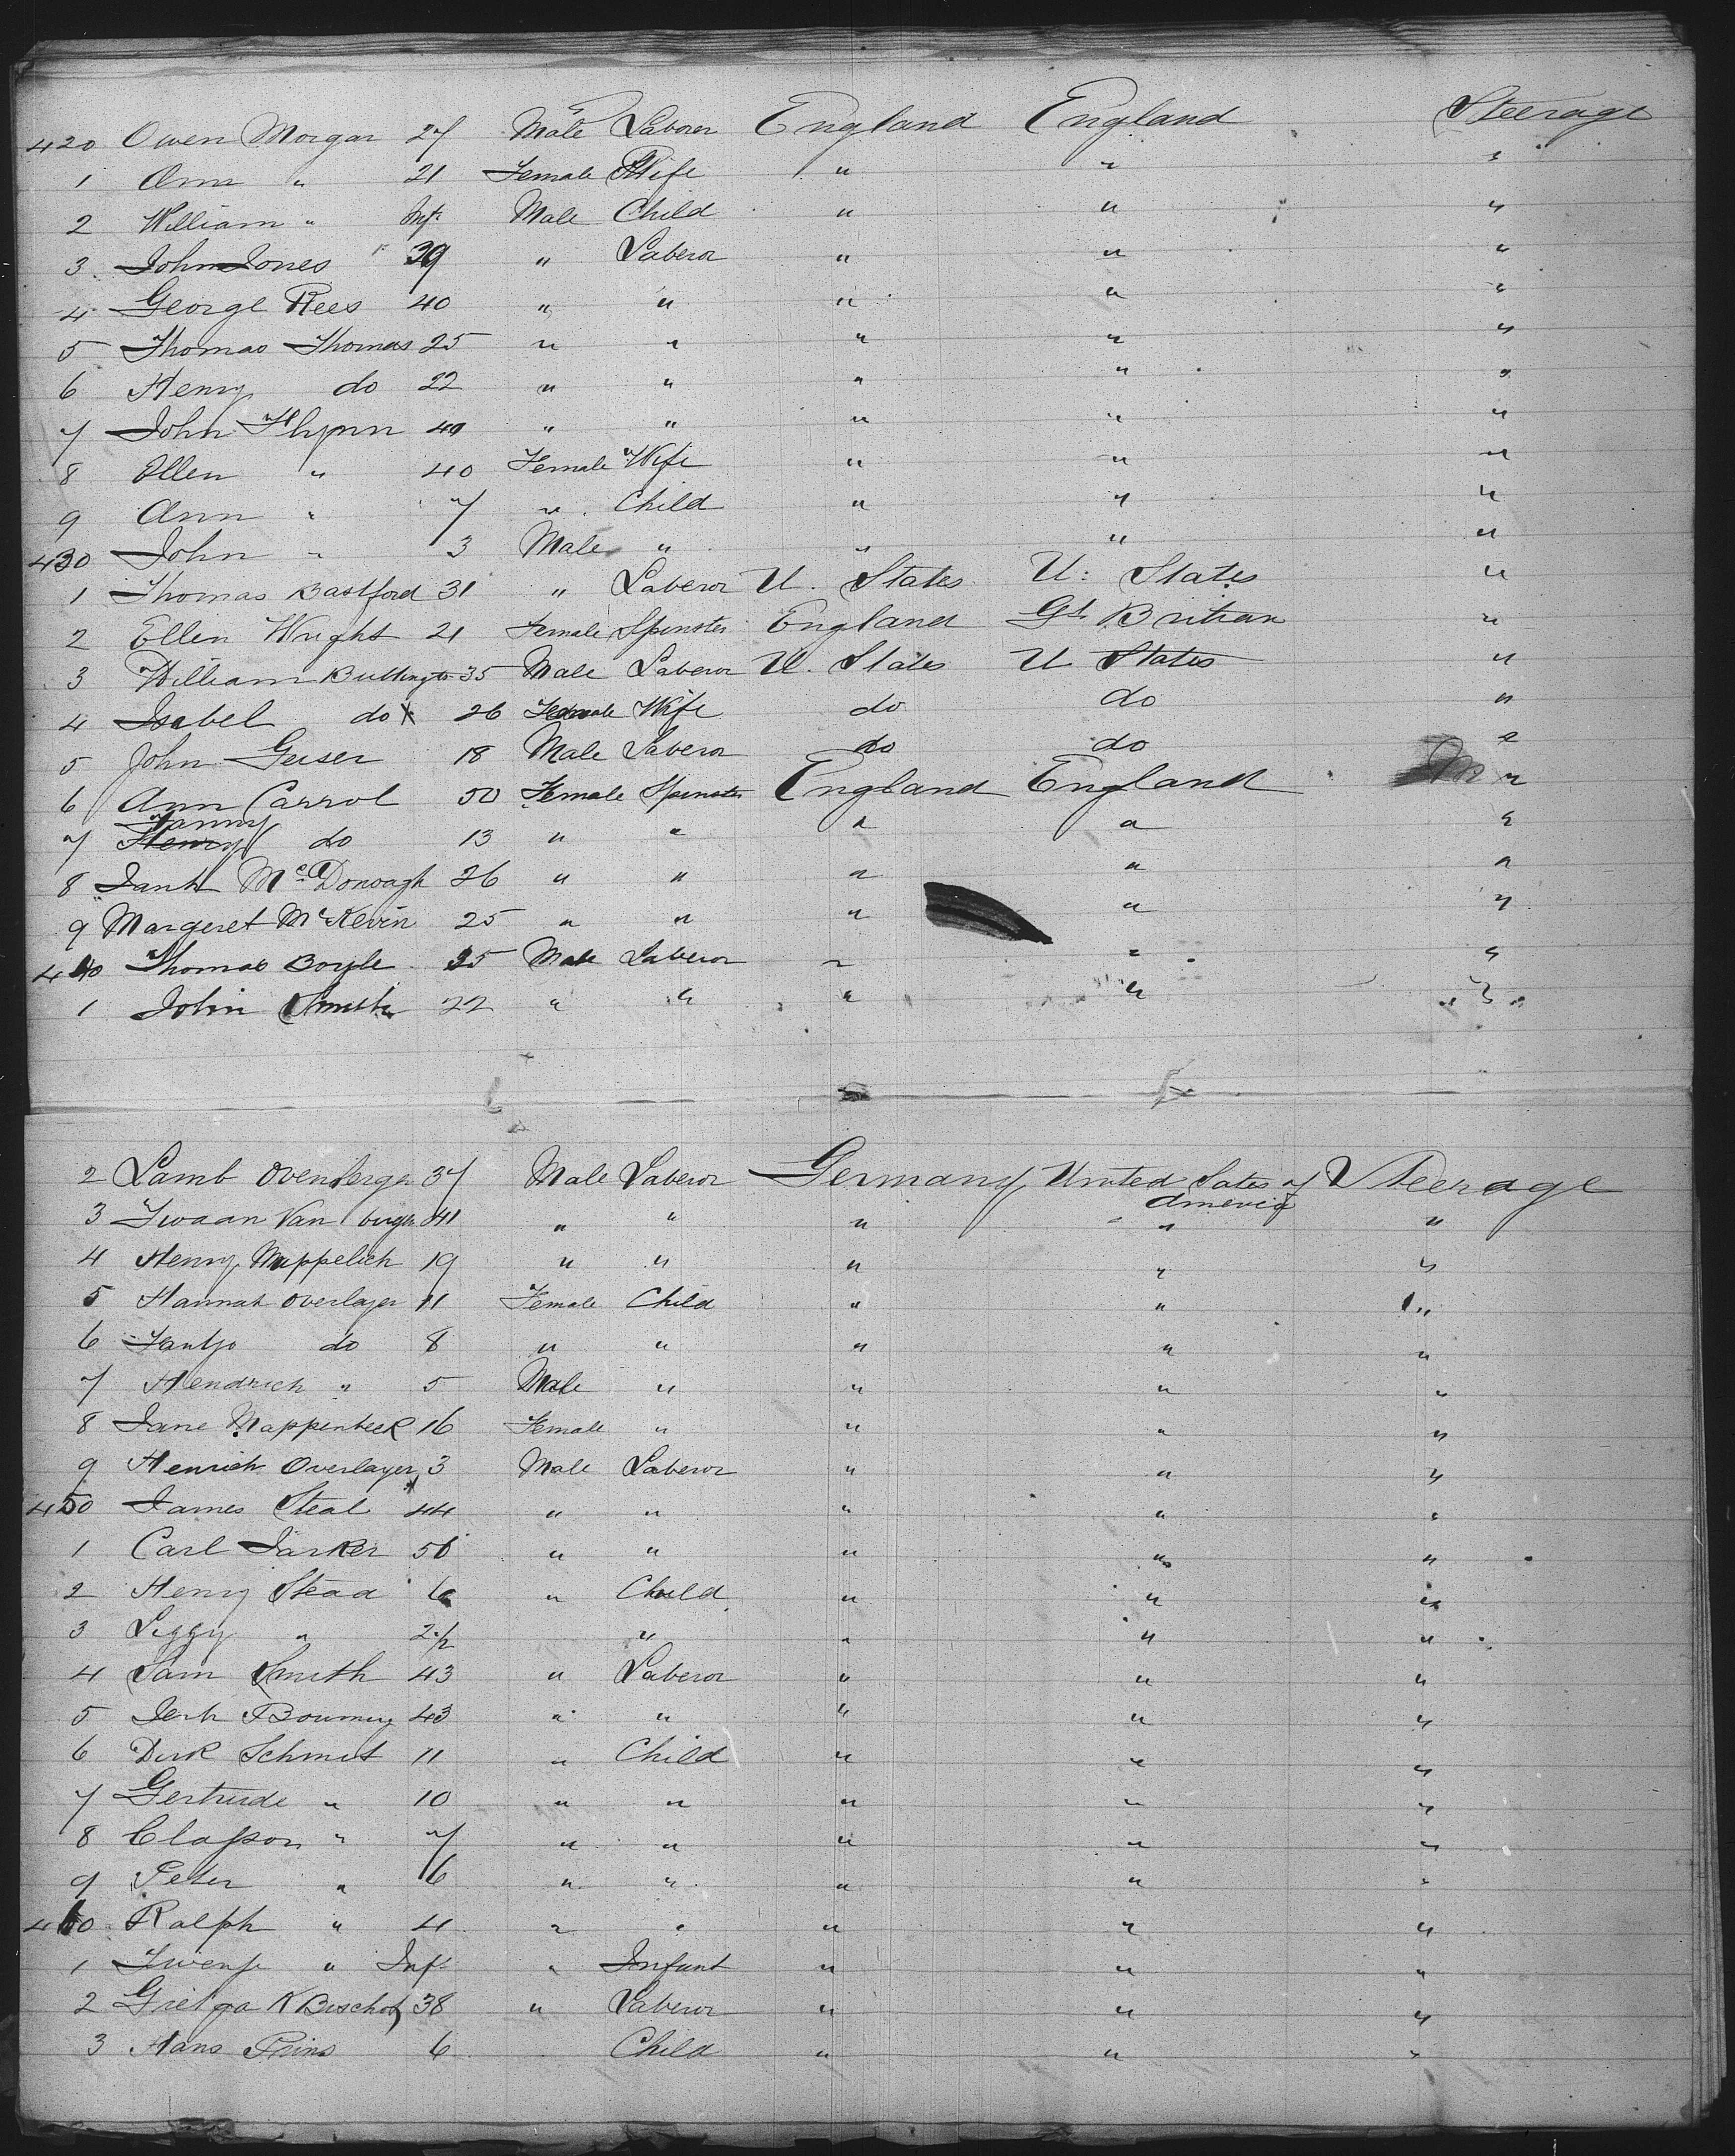 420 Owen Morgan 27 Male Laborer England England Steerage
1 Ann " 21 Female Wife " " "
2 William " Inft Male Child " " "
3 John Jones 39 " Laberor " " "
4 George Rees 40 " " " " "
5 Thomas Thomas 25 " " " " "
6 Henry do 22 " " " " "
7 John Flynn 40 " " " " "
8 Ellen " 40 Female Wife " " "
9 Ann " 7 " Child " " "
430 John " 3 Male " " " "
1 Thomas Bastford 31 " Laberor U. States U. States "
2 Ellen Wright 21 Female Spinster England Gt Britian "
3 William Bullington 35 Male Laberor U. States U States "
4 Isabel do 26 Female Wife do do "
5 John Geiser 18 Male Laberor do do "
6 Ann Carrol 50 Female Spinster England England "
Fanny
7 Henry do 13 " " " " "
8 McDonough 26 " " " " "
9 Margeret McKevin 25 " " " " "
440 Thomas Boyle 35 Male Laberor " " "
1 John Smith 22 " " " " "
2 Lamb Overberger 37 Male Laberor Germany United Sates of Steerage
America
3 Van 41 " " " " "
4 Henry Muppelich 19 " " " " "
5 Hannah Overlayer 11 Female Child " " "
6 Jantje do 8 " " " " "
7 Hendrich " 5 Male " " " "
8 Jane Mappenbeck 16 Female " " " "
9 Henrich Overlayer 3 Male Laberor " " "
450 James Steal 44 " " " " "
1 Carl Jarker 50 " " " " "
2 Henry Stead 6 " Child " " "
3 " 2 1/2 " " " "
4 Sam Smith 43 " Laberor " " "
5 43 " " " " "
6 Dirk Schmit 11 " Child " " "
7 Gertrude " 10 " " " " "
8 Classon " 7 " " " " "
9 Peter " 6 " " " " "
460 Ralph " 4 " " " " "
1 " Inft " Infant " " "
2 K Bischof 38 " Laberor " " "
3 Hans Prins 6 Child " " "